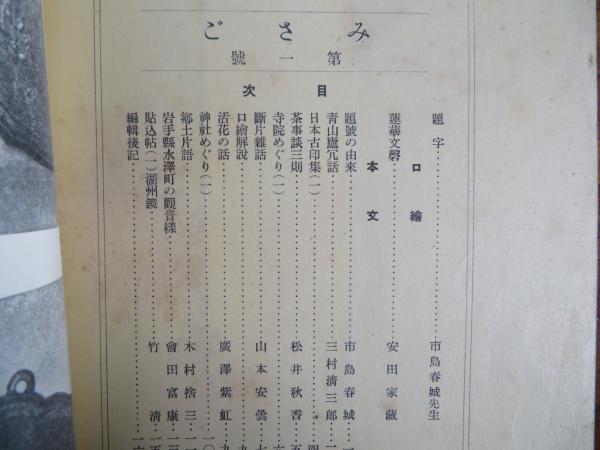 みさご
第一號
目次
題字……市島春城先生
口繪
蓮華文磬……安田家藏
本文
題號の由來……市島春城…一
青山廬冗話……三村清三郎…二
日本古印集(一)……四
茶事談三則……松井秋香…五
寺院めぐり(一)……六
斷片雜話……山本安曇…七
口繪解說……九
活花の話……廣澤紫虹…九
神社めぐり(一)……一〇
鄉土片語……木村捨三…一一
岩手縣水澤町の觀音樣……會田富康…一三
貼込帖(一)湖州鏡……竹清…一五
編輯後記……一六